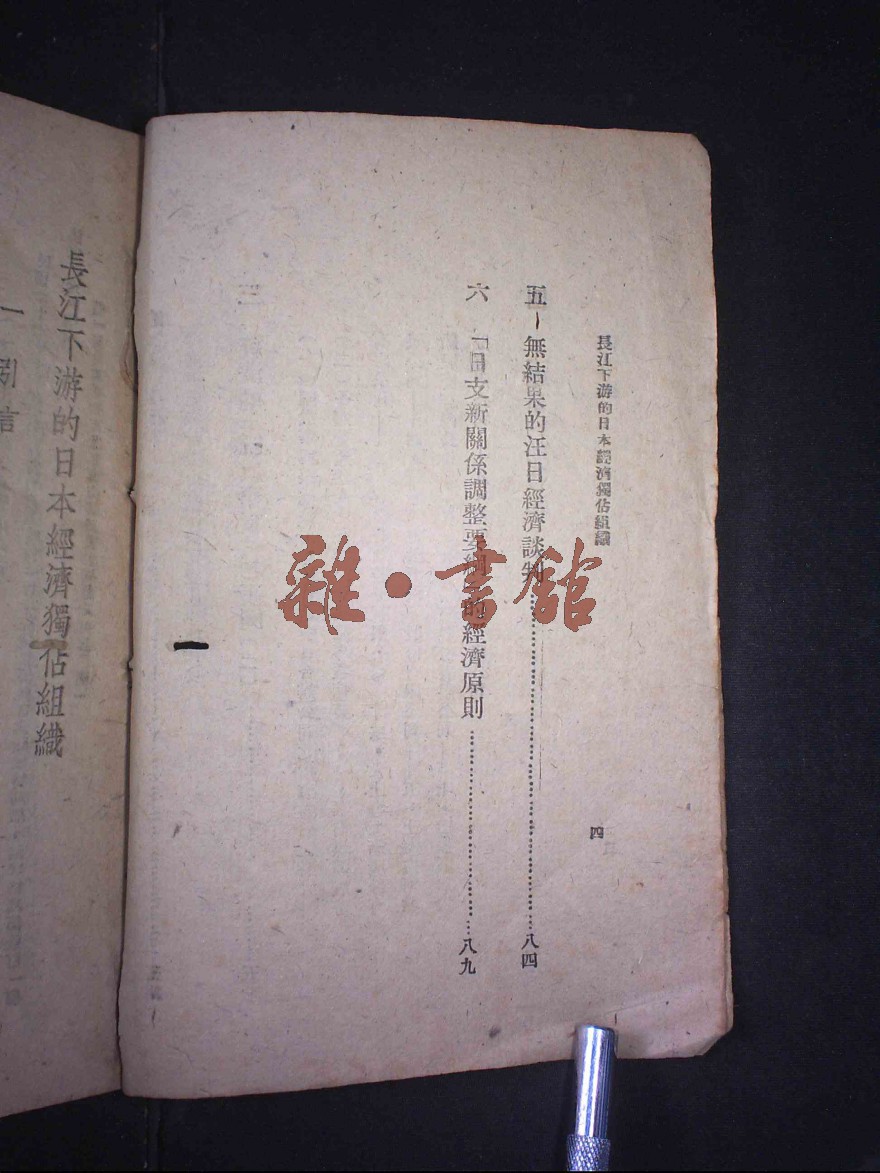 長江下游的日本經濟獨佔組織
四
五 無結果的汪日經濟談判……八四
六 「日支新關係調整要綱」的經濟原則……八九
長江下游的日本經濟獨佔組織
一 引言
雜·書館